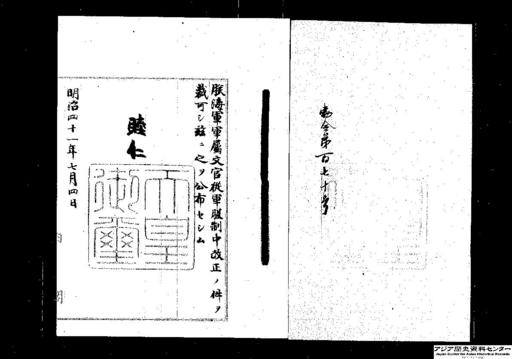 勅令第百七十号
朕海軍軍属文官従軍服制中改正ノ件ヲ
裁可シ茲ニ之ヲ公布セシム
睦仁
天皇
御璽
明治四十一年七月四日
アジア歴史資料センター
Japan Center for Asian Historical Records